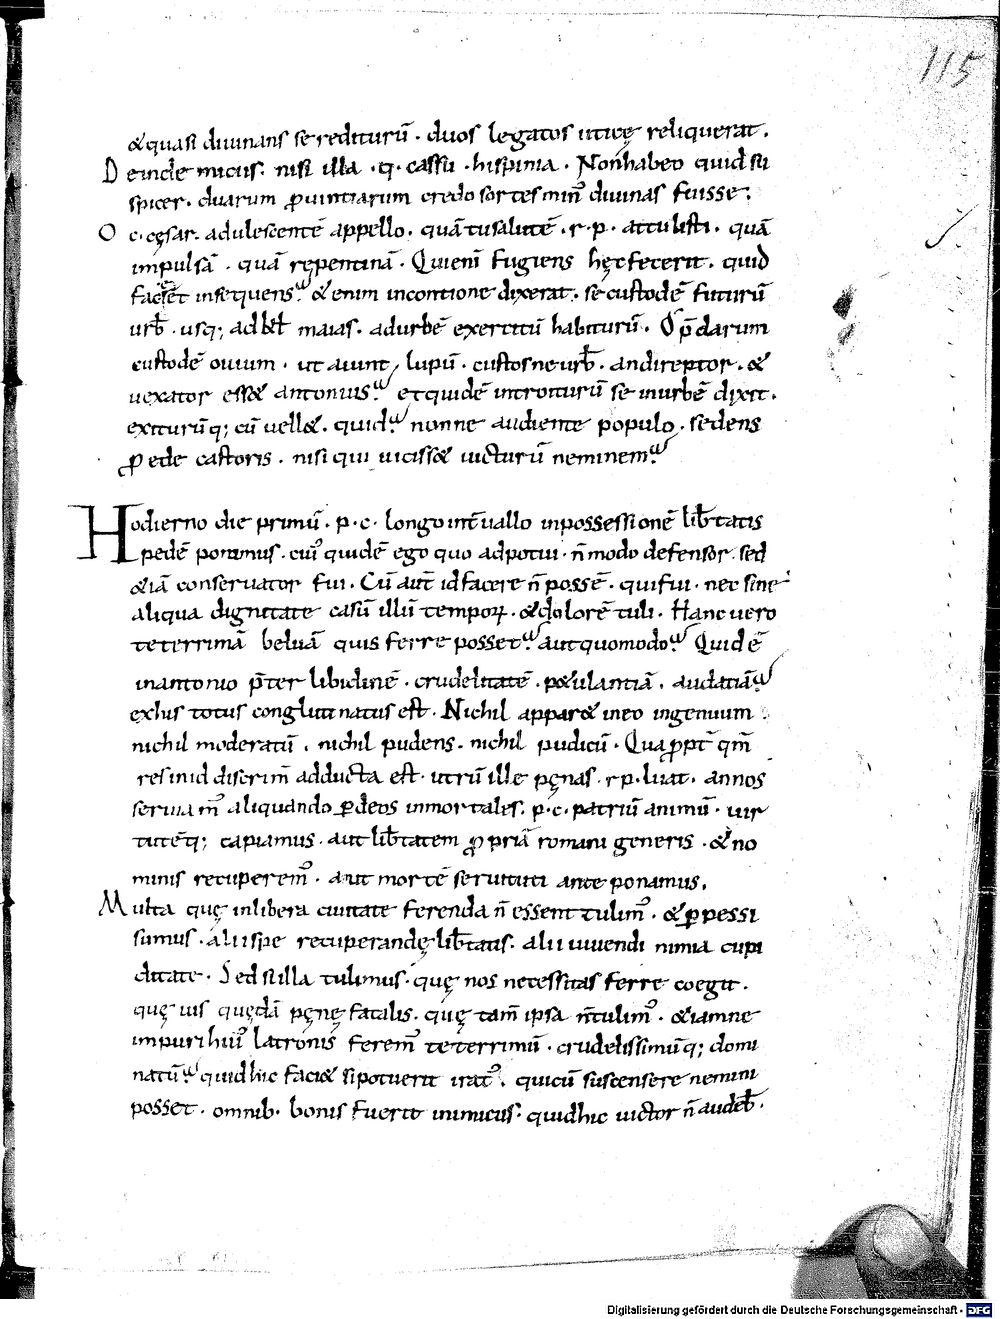 115
&quasi diuinans se rediturū · duos legatos uticę reliquerat.
Deinde micus. nisi illa · q · cassii · hispinia . Non habeo quid su
spicer . duarum ꝓuintiarum credo sortes minꝰ diuinas fuisse.
O c. cęsar. adulescentē appello. quā tu salutē . r . p . attulisti . quā
impulsā . quā repentinā . Qui eni fugiens hęc fecerit . quid
faceret insequens? & enim in contione dixerat . se custodē futurū
urƀ . usq; ad kł maias . ad urbē exercitū habiturū . O p̄darum
custodē ouium . ut aiunt, lupū . custos ne urƀ . an direptor . &
uexator ess& antonius? et quidē introiturū se in urbē dixit.
exiturūq; cū uell& . quid? nonne audiente populo . sedens
ꝓ ede castoris . nisi qui uiciss& uicturū neminem?
Hodierno die primū . p . c . longo int̄uallo in possessionē lib̄tatis
pedē ponimus . cuiꝰ quidē ego quo ad potui . n̄ modo defensor . sed
&iā conseruator fui . Cū aut̄ id facere n̄ possē . quifui . nec sine
aliqua dignitate casū illū temporꝝ . & dolorē tuli . Hanc uero
teterrimā beluā quis ferre posset? aut quomodo? Quid ē
in antonio p̄ter libidinē . crudelitatē . p&ulantiā . audatiā?
ex his totus conglutinatus est . Nichil appar& in eo ingenuum
nichil moderatū . nichil pudens . nichil pudicū . Quaꝓpt̄ qm̄
res in id discrim̄ adducta est . utrū ille pęnas . r p . luat . an nos
seruiam̄ aliquando ꝑ deos inmortales . p . c . patriū animū . uir
tutēq; capiamus . aut lib̄tatem ꝓpriā romani generis . & no
minis recuperemꝰ . aut mortē seruituti ante ponamus.
Multa quę in libera ciuitate ferenda n̄ essent tulimꝰ . & ꝑpessi
sumus . alii spe recuperandę lib̄tatis . alii uiuendi nimia cupi
ditate . Sed si illa tulimus . quę nos necessitas ferre coegit .
quę uis quędā pęnę fatalis . quę tam̄ ipsa n̄ tulimꝰ . & iamne
impuri huiꝰ latronis feremꝰ teterrimū . crudelissimūq; domi
natū? quid hic faci& si potuerit iratꝰ . qui cū suscensere nemini
posset . omnib. bonis fuerit inimicus . quid hic uictor n̄ audeƀ .
Digitalisierung gefördert durch die Deutsche Forschungsgemeinschaft - DFG